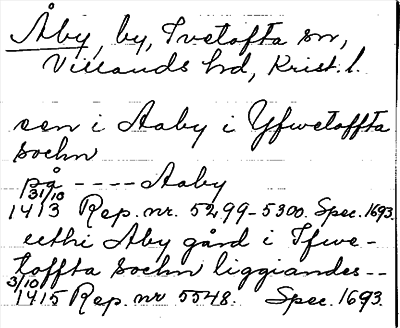 Åby, by, Ivetofta sn,
Villands hd, Krist. l.
sen i Aaby i Yfwetoffta
sochn
på ---- Aaby
31/10
1413 Rep. nr. 5299-5300. Spec. 1693.
eethi Aby gård i Ifwe-
toffta sochn liggiandes--
3/10
1415 Rep. nr 5548. Spec. 1693.